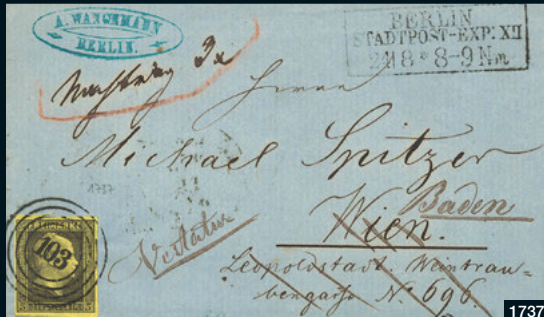 A. WANGEMANN
BERLIN.
BERLIN
STADTPOST-EXP. XII
24 8 * 8-9 Nm
3x
Herrn
Michael Spitzer
Baden
Wien.
1737
103
Leopoldstadt. Weintrau-
bengasse No 696.
1737